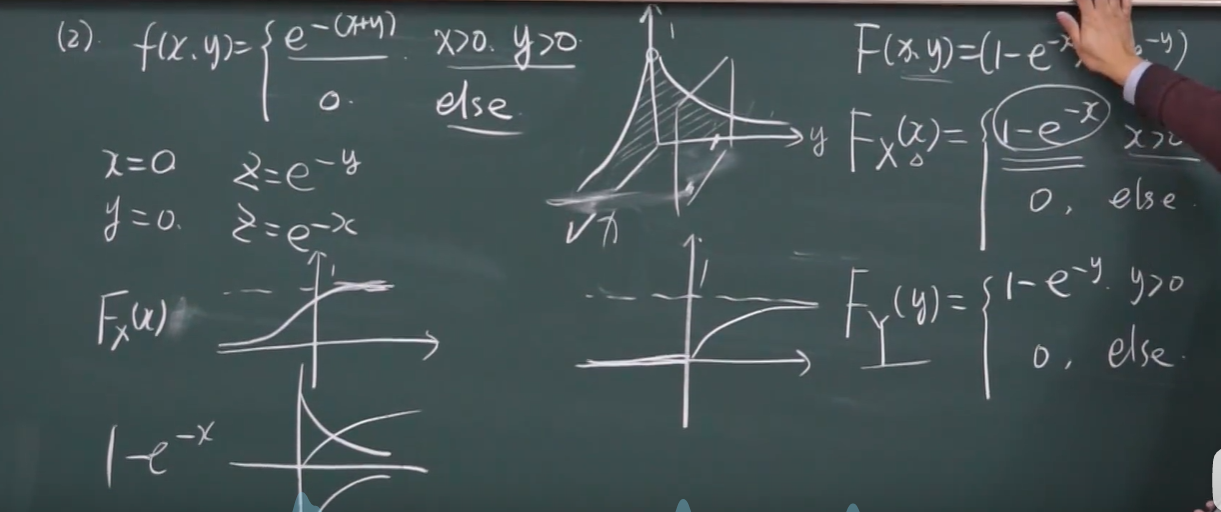 (2). f(x,y)= { e^{-(x+y)}. x>0. y>0
0. else.
x=0 z=e^{-y}
y=0. z=e^{-x}
F_X(x)
1
1-e^{-x}
1
y
x
1
F(x,y)=(1-e^{-x} e^{-y})
F_X(x)= { 1-e^{-x} x>0
0, else.
F_Y(y)= { 1-e^{-y}. y>0
0, else.